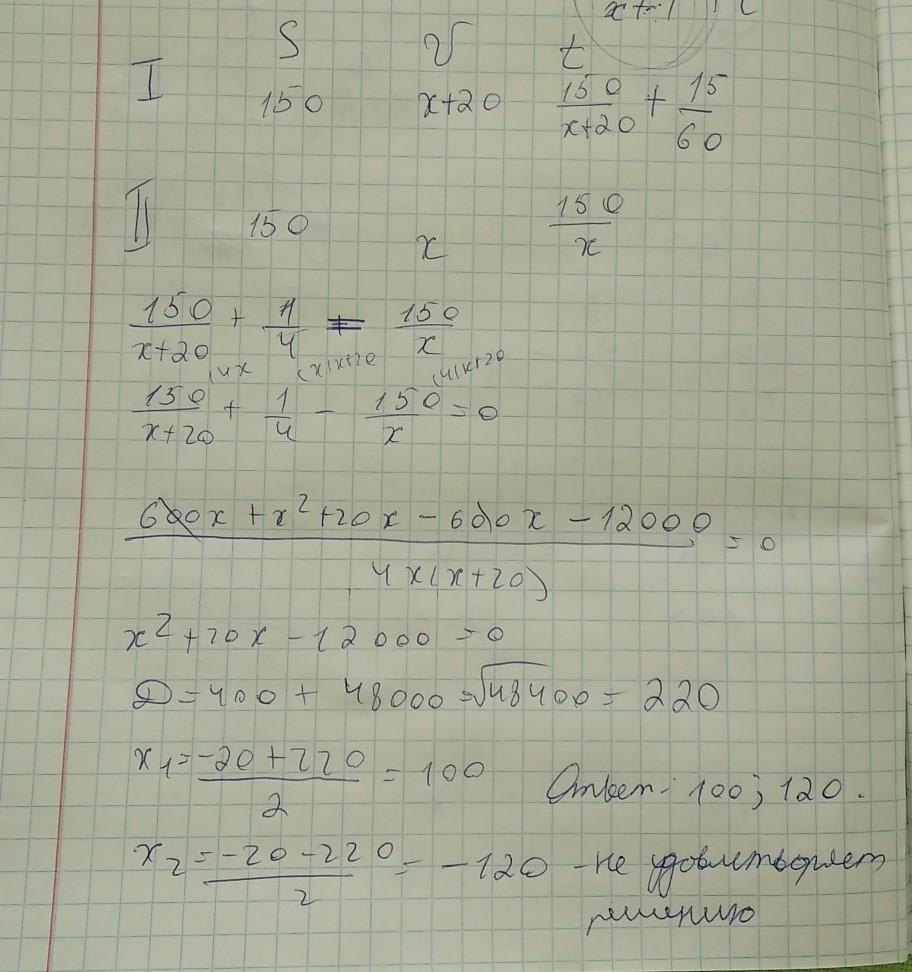 S V t
I 150 x+20 150/(x+20) + 15/60
II 150 x 150/x
150/(x+20) + 1/4 = 150/x
(4x (x(x+20 (4(x+20
150/(x+20) + 1/4 - 150/x = 0
(600x + x² + 20x - 600x - 12000)/(4x(x+20)) = 0
x² + 20x - 12000 = 0
D = 400 + 48000 = √48400 = 220
x₁ = (-20 + 220)/2 = 100
Ответ: 100; 120.
x₂ = (-20 - 220)/2 = -120 - не удовлетворяет
решению